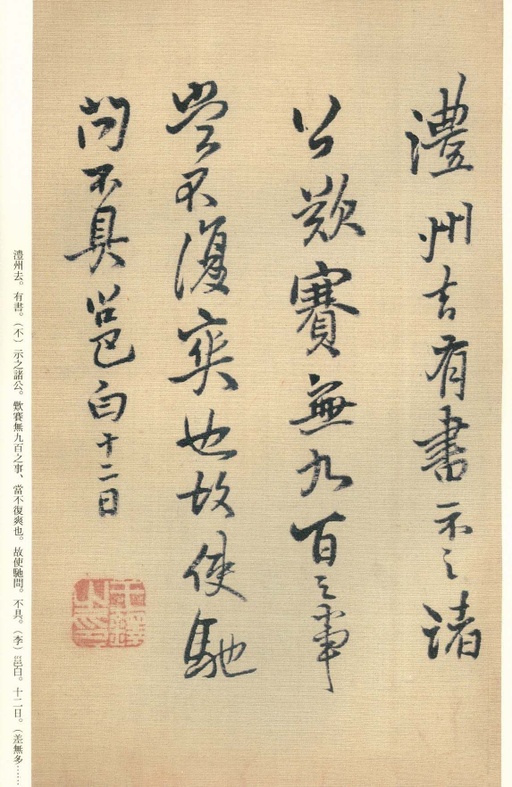 澧州去有書示之諸
公歎賽無九百之事
當不復爽也故使馳
問不具邕白十二日
王鐸之印
澧州去。有書。（不）示之諸公。歎賽無九百之事、當不復爽也。故使馳問。不具。（李）邕白。十二日。（差無多……